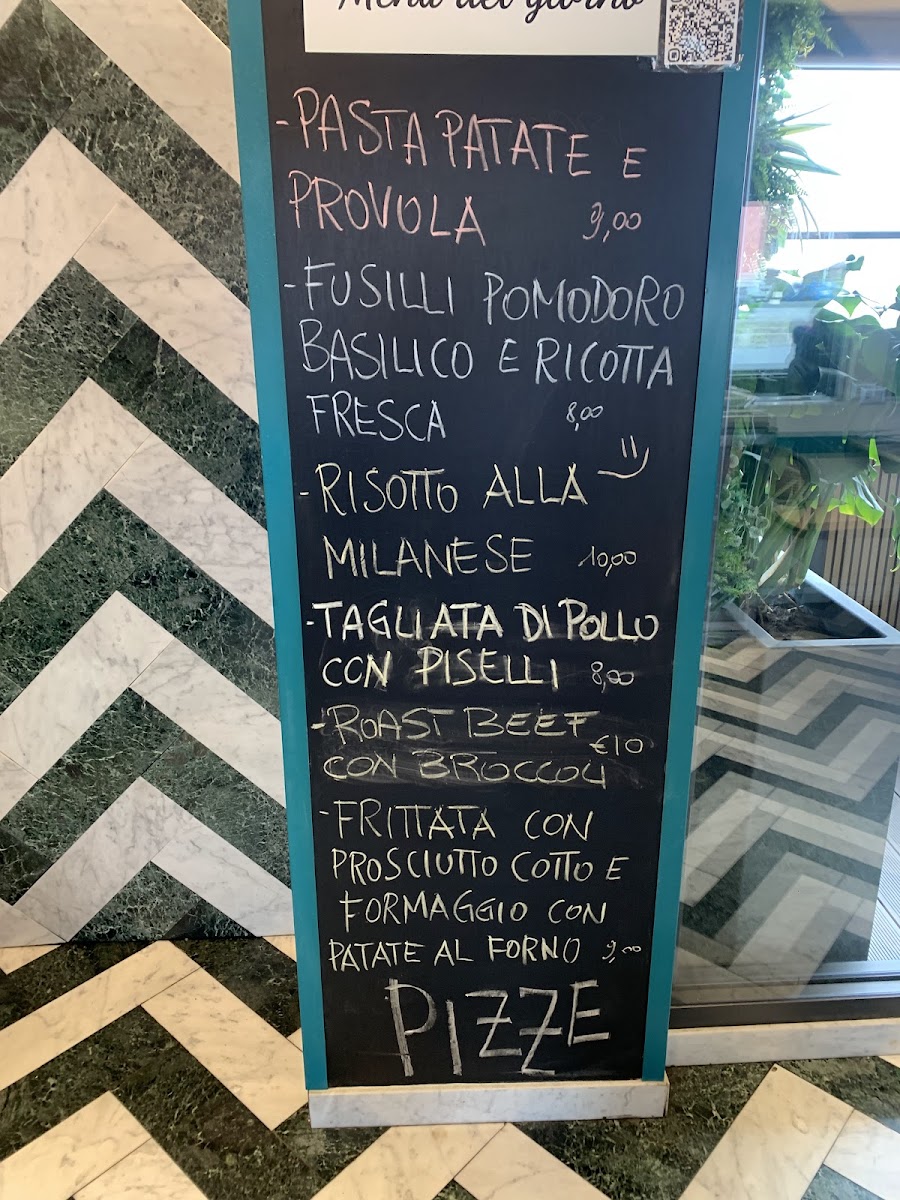 Menu del giorno
- PASTA PATATE E
PROVOLA 9,00
- FUSILLI POMODORO
BASILICO E RICOTTA
FRESCA 8,00
- RISOTTO ALLA
MILANESE 10,00
- TAGLIATA DI POLLO
CON PISELLI 8,00
- ROAST BEEF
€10
CON BROCCOLI
- FRITTATA CON
PROSCIUTTO COTTO E
FORMAGGIO CON
PATATE AL FORNO 9,00
PIZZE